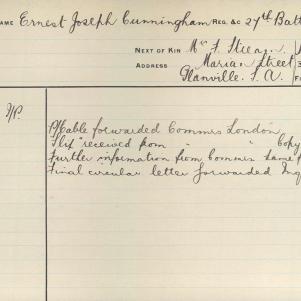 NAME Ernest Joseph Cunningham REG. &C 27th Batt
NEXT OF KIN Mr F.
ADDRESS Marian Street
Glanville. S. A.
P/Cable forwarded Commrs London
"Slip" received from " Copy
Further information from Commrs same
Final circular letter forwarded Inq